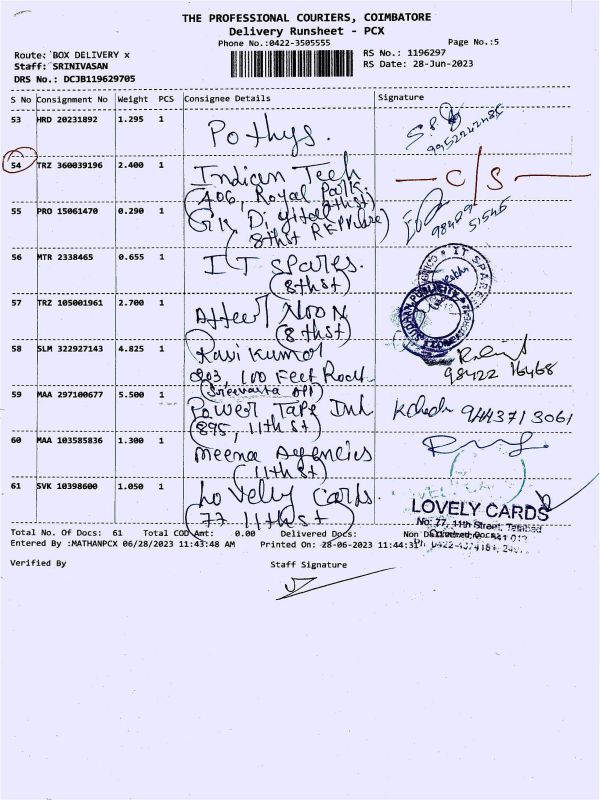 THE PROFESSIONAL COURIERS, COIMBATORE
Delivery Runsheet - PCX
Phone No.:0422-3505555
Page No.:5
Route: BOX DELIVERY x
Staff: SRINIVASAN
DRS No.: DCJB119629705
RS No.: 1196297
RS Date: 28-Jun-2023
S No Consignment No Weight PCS Consignee Details Signature
53 HRD 20231892 1.295 1 Pothys.
54 TRZ 360039196 2.400 1 Indian Tech C/S
406, Royal Park.
55 PRO 15061470 0.290 1 GK Digital
(8thst
56 MTR 2338465 0.655 1 IT Spares.
(8thst)
IT SPARE
57 TRZ 105001961 2.700 1 After Noon
(8thst)
58 SLM 322927143 4.825 1 Ravi Kumar
98422 16468
903, 100 Feet Road
59 MAA 297100677 5.500 1 Power Tape Ind 944371 3061
(895, 11th st)
60 MAA 103585836 1.300 1 Meena Agencies
(11th st)
61 SVK 10398600 1.050 1 Lovely Cards.
(77 11th st)
LOVELY CARDS
No: 77, 11th Street,
Total No. Of Docs: 61 Total COD Amt: 0.00 Delivered Docs:
Entered By :MATHANPCX 06/28/2023 11:43:48 AM Printed On: 28-06-2023 11:44:31
Verified By Staff Signature